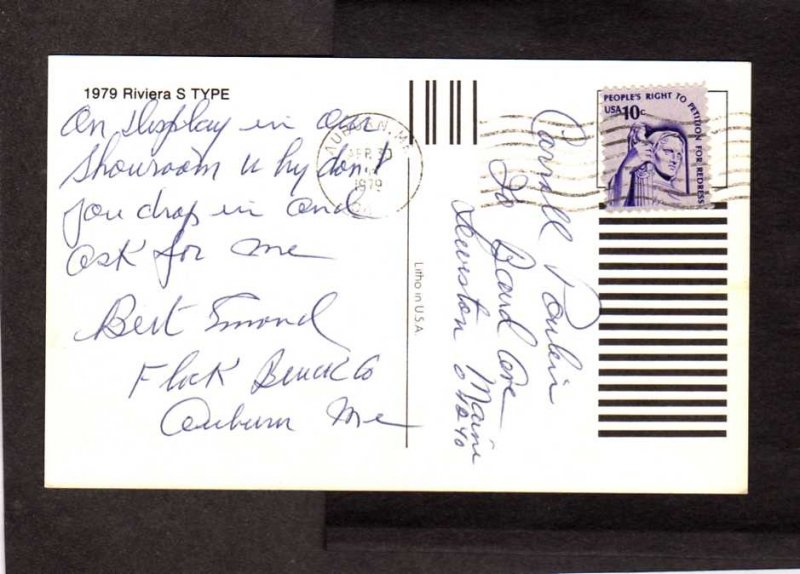 1979 Riviera S TYPE
On display in our
showroom why don't
you drop in and
ask for me
Bert Emond
Flock Buick Co
Auburn Me
AUBURN, ME
APR 30
1979
PEOPLE'S RIGHT TO PETITION FOR REDRESS
USA 10c
Litho in U.S.A.
Carroll
Ave
Lewiston Maine
04240